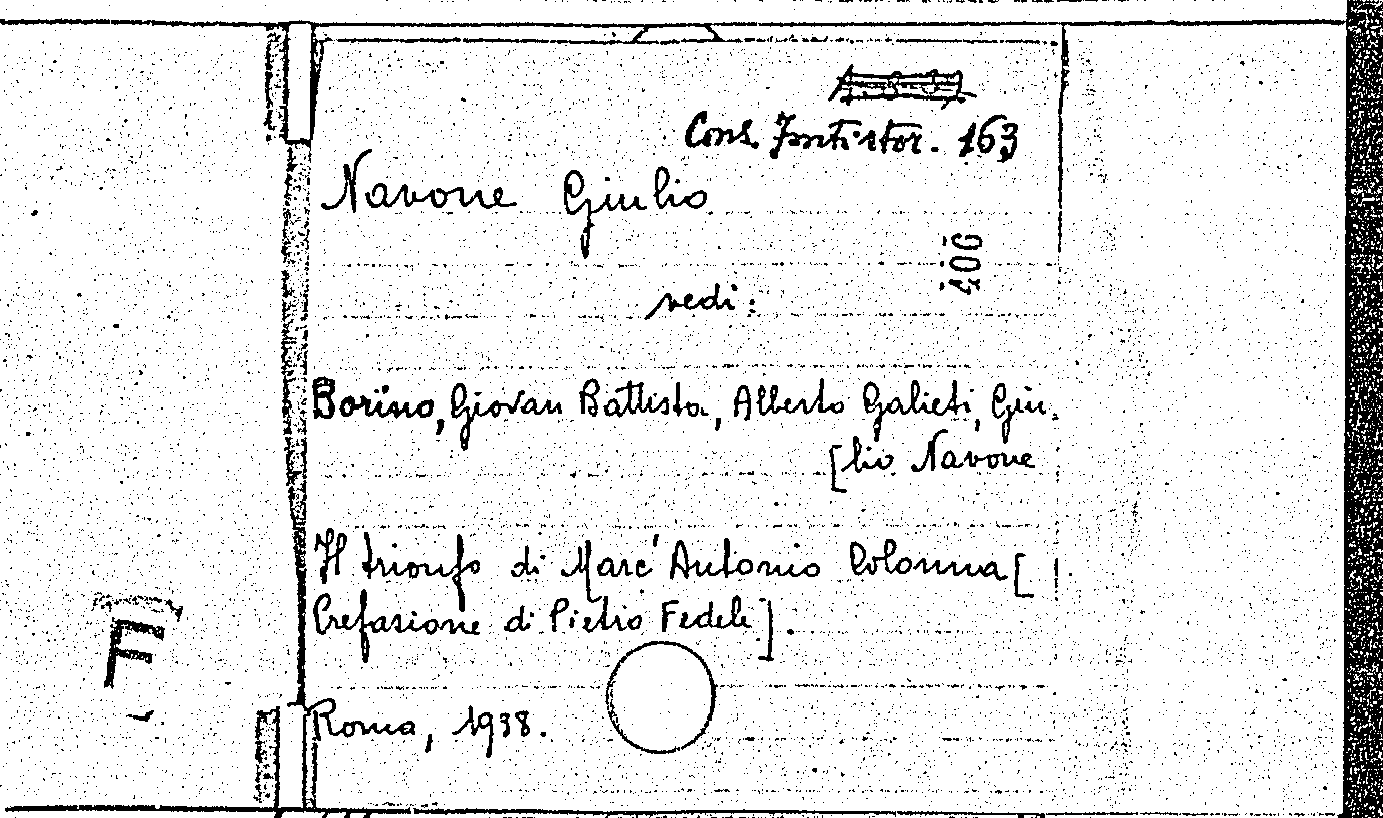 Cons. Intistor. 163
Navone Giulio
400
vedi:
Borino, Giovan Battista, Alberto Galieti, Giu.
[lio Navone
Il trionfo di Marc'Antonio Colonna [
Prefazione di Pietro Fedele].
Roma, 1938.
F